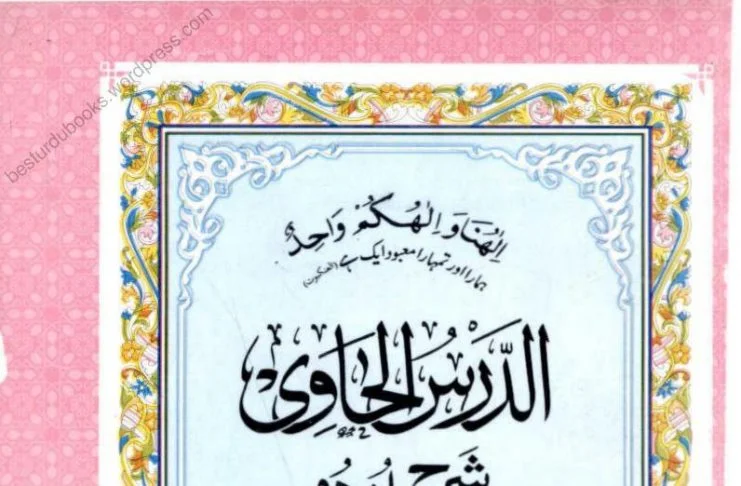 besturdubooks.wordpress.com
اِلٰهُنَا وَاِلٰهُكُمْ وَاحِدٌ
ہمارا اور تمہارا معبود ایک ہے (العنکبوت)
الدَّرْسُ الْحَاوِیْ
شرح اردو